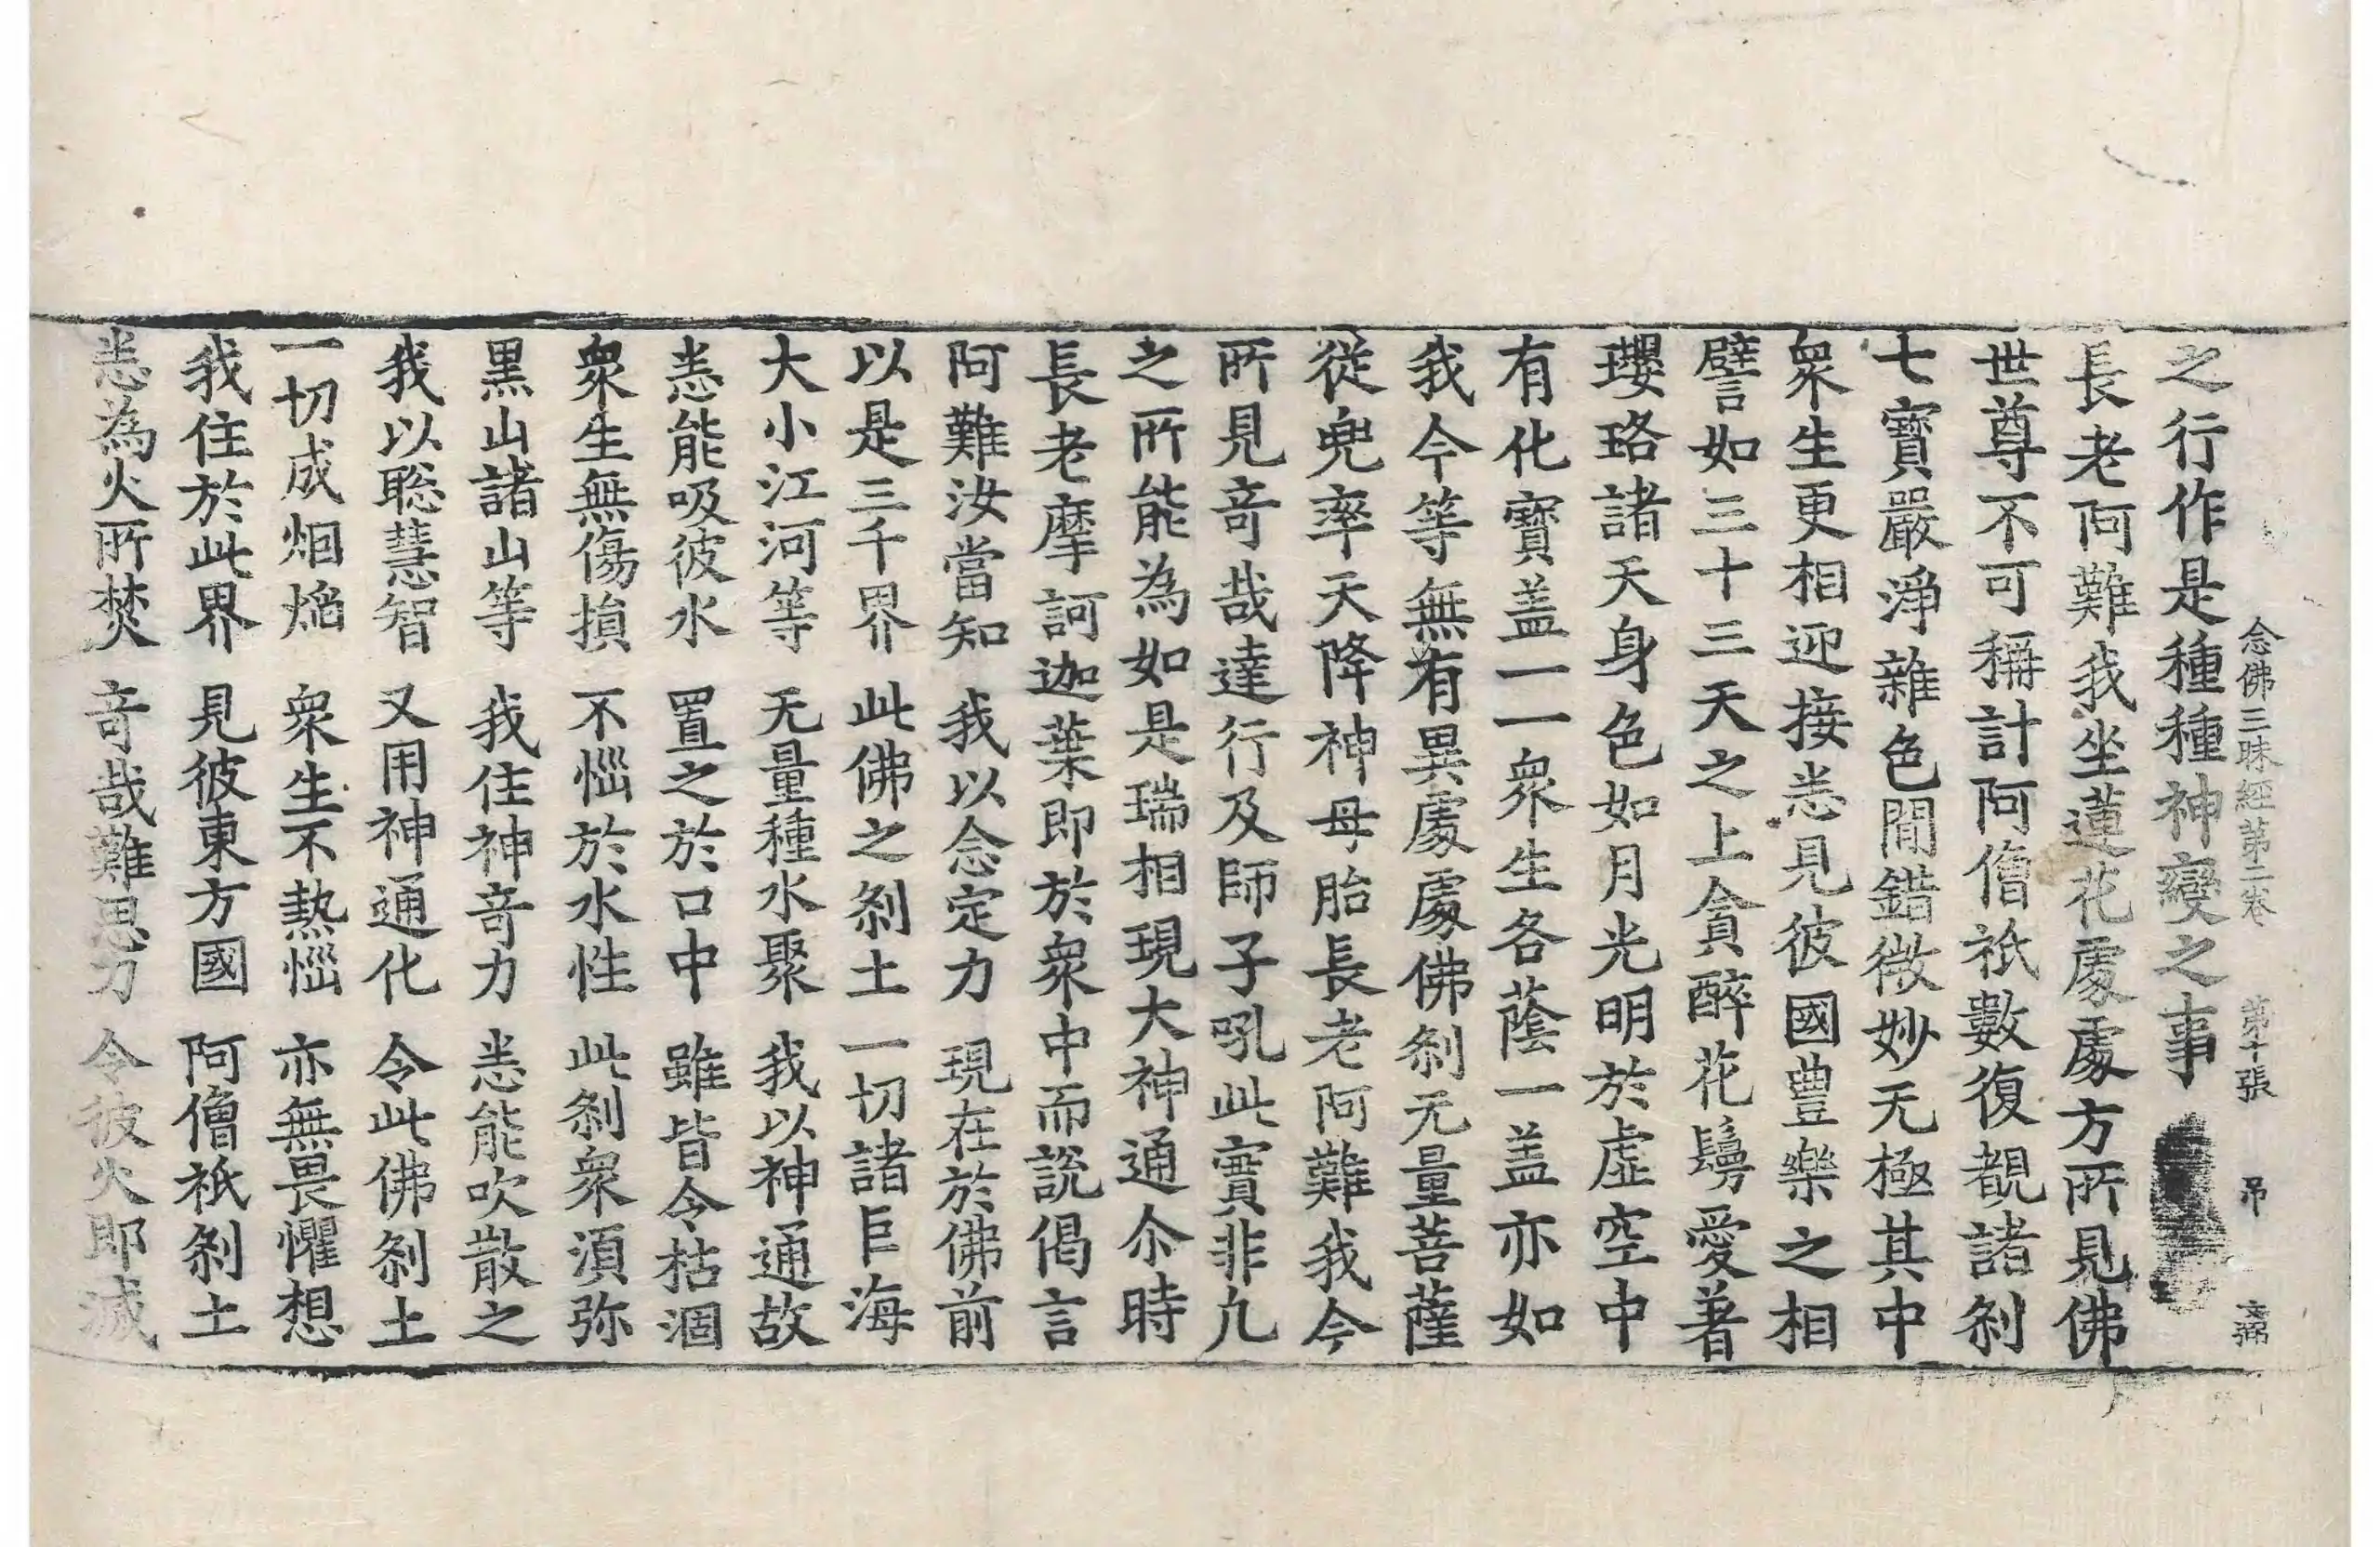 念佛三昧經第二卷 第十張 吊
之行作是種種神變之事
長老阿難我坐蓮花處處方所見佛
世尊不可稱計阿僧祇數復覩諸刹
七寶嚴淨雜色間錯微妙无極其中
衆生更相迎接悉見彼國豊樂之相
譬如三十三天之上貪醉花鬘愛著
瓔珞諸天身色如月光明於虛空中
有化寶盖一一衆生各蔭一盖亦如
我今等無有異處處佛刹无量菩薩
從兜率天降神母胎長老阿難我今
所見竒哉達行及師子吼此實非凢
之所能為如是瑞相現大神通尒時
長老摩訶迦葉即於衆中而說偈言
阿難汝當知 我以念定力 現在於佛前
以是三千界 此佛之刹土 一切諸巨海
大小江河等 无量種水聚 我以神通故
悉能吸彼水 置之於口中 雖皆令枯涸
衆生無傷損 不惱於水性 此刹衆湏弥
黒山諸山等 我住神竒力 悉能吹散之
我以聡慧智 又用神通化 令此佛刹土
一切成烟焔 衆生不熱惱 亦無畏懼想
我住於此界 見彼東方國 阿僧祇刹土
悉為火所焚 竒哉難思力 令彼火即滅